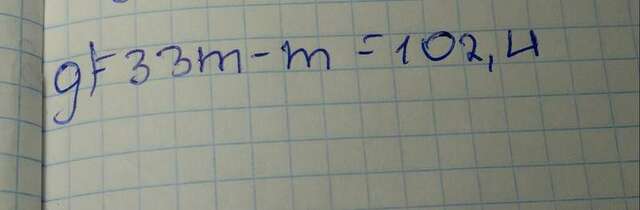 g) 33m - m = 102,4